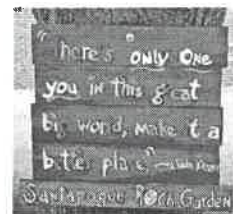 "There's only one
you in this great
big world, make it a
better place"
Santarogue Rock Garden